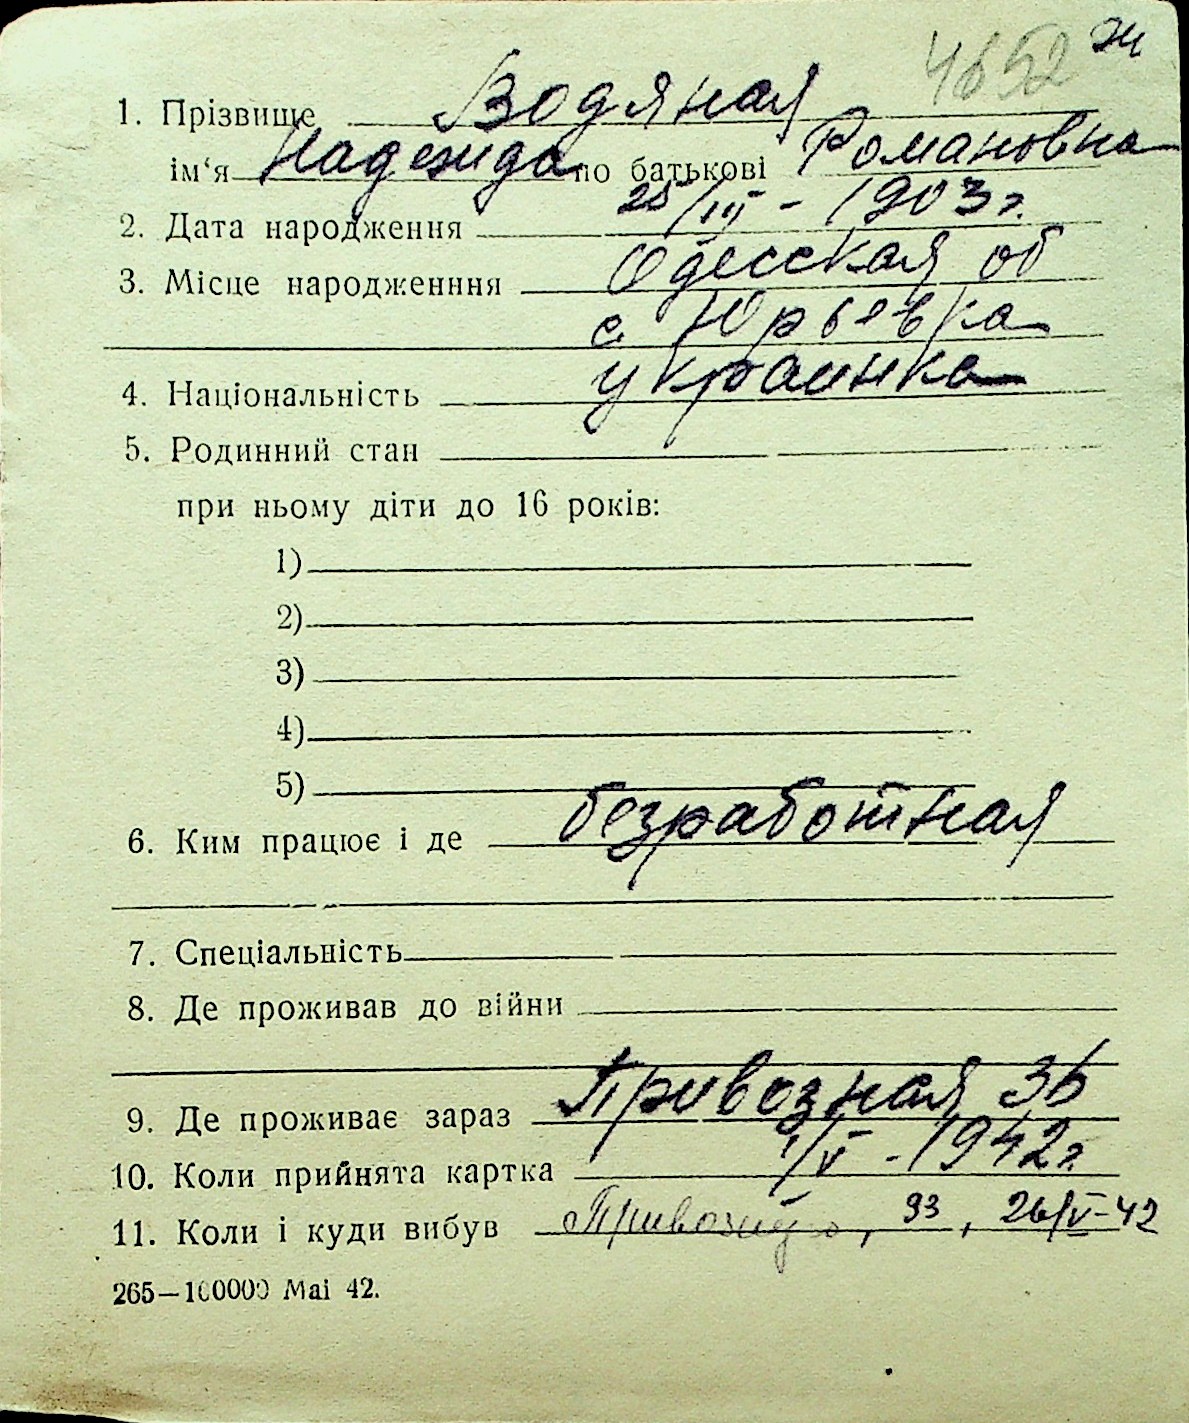 4652 Ж
1. Прізвище Водяная
ім‘я Надежда по батькові Романовна
2. Дата народження 25/III - 1903 г.
3. Місце народженння Одесская об
с Юрьевка
4. Національність украинка
5. Родинний стан
при ньому діти до 16 років:
1)
2)
3)
4)
5)
6. Ким працює і де безработная
7. Спеціальність
8. Де проживав до війни
9. Де проживає зараз Привозная 36
10. Коли прийнята картка 1/V - 1942 г.
11. Коли і куди вибув , 93, 26/V-42
265—100000 Mai 42.